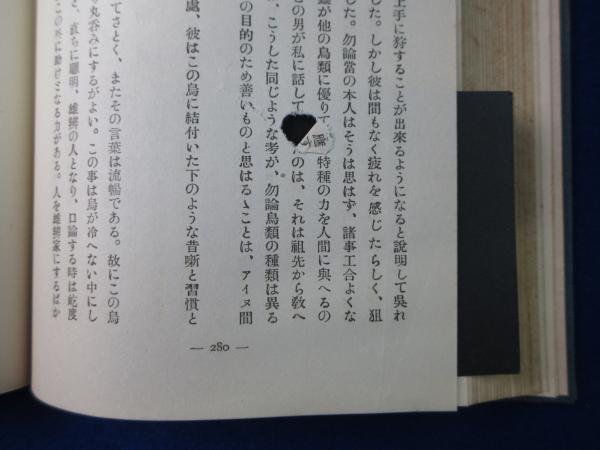 上手に狩することが出來るようになると說明して吳れ
した。しかし彼は間もなく疲れを感じたらしく、狙
した。勿論當の本人はそうは思はず、諸事工合よくな
が他の鳥類に優りて 特種の力を人間に與へるの
の男が私に話して のは、それは祖先から敎へ
、こうした同じような考が、勿論鳥類の種類は異る
の目的のため善いものと思はるゝことは、アイヌ間
處、彼はこの鳥に結付いた下のような昔噺と習慣と
てさとく、またその言葉は流暢である。故にこの鳥
丸呑みにするがよい。この事は鳥が冷へない中にし
と、直ちに聰明、雄辯の人となり、口論する時は屹度
この外に助けとなる力がある。人を雄辯家にするばか
— 280 —